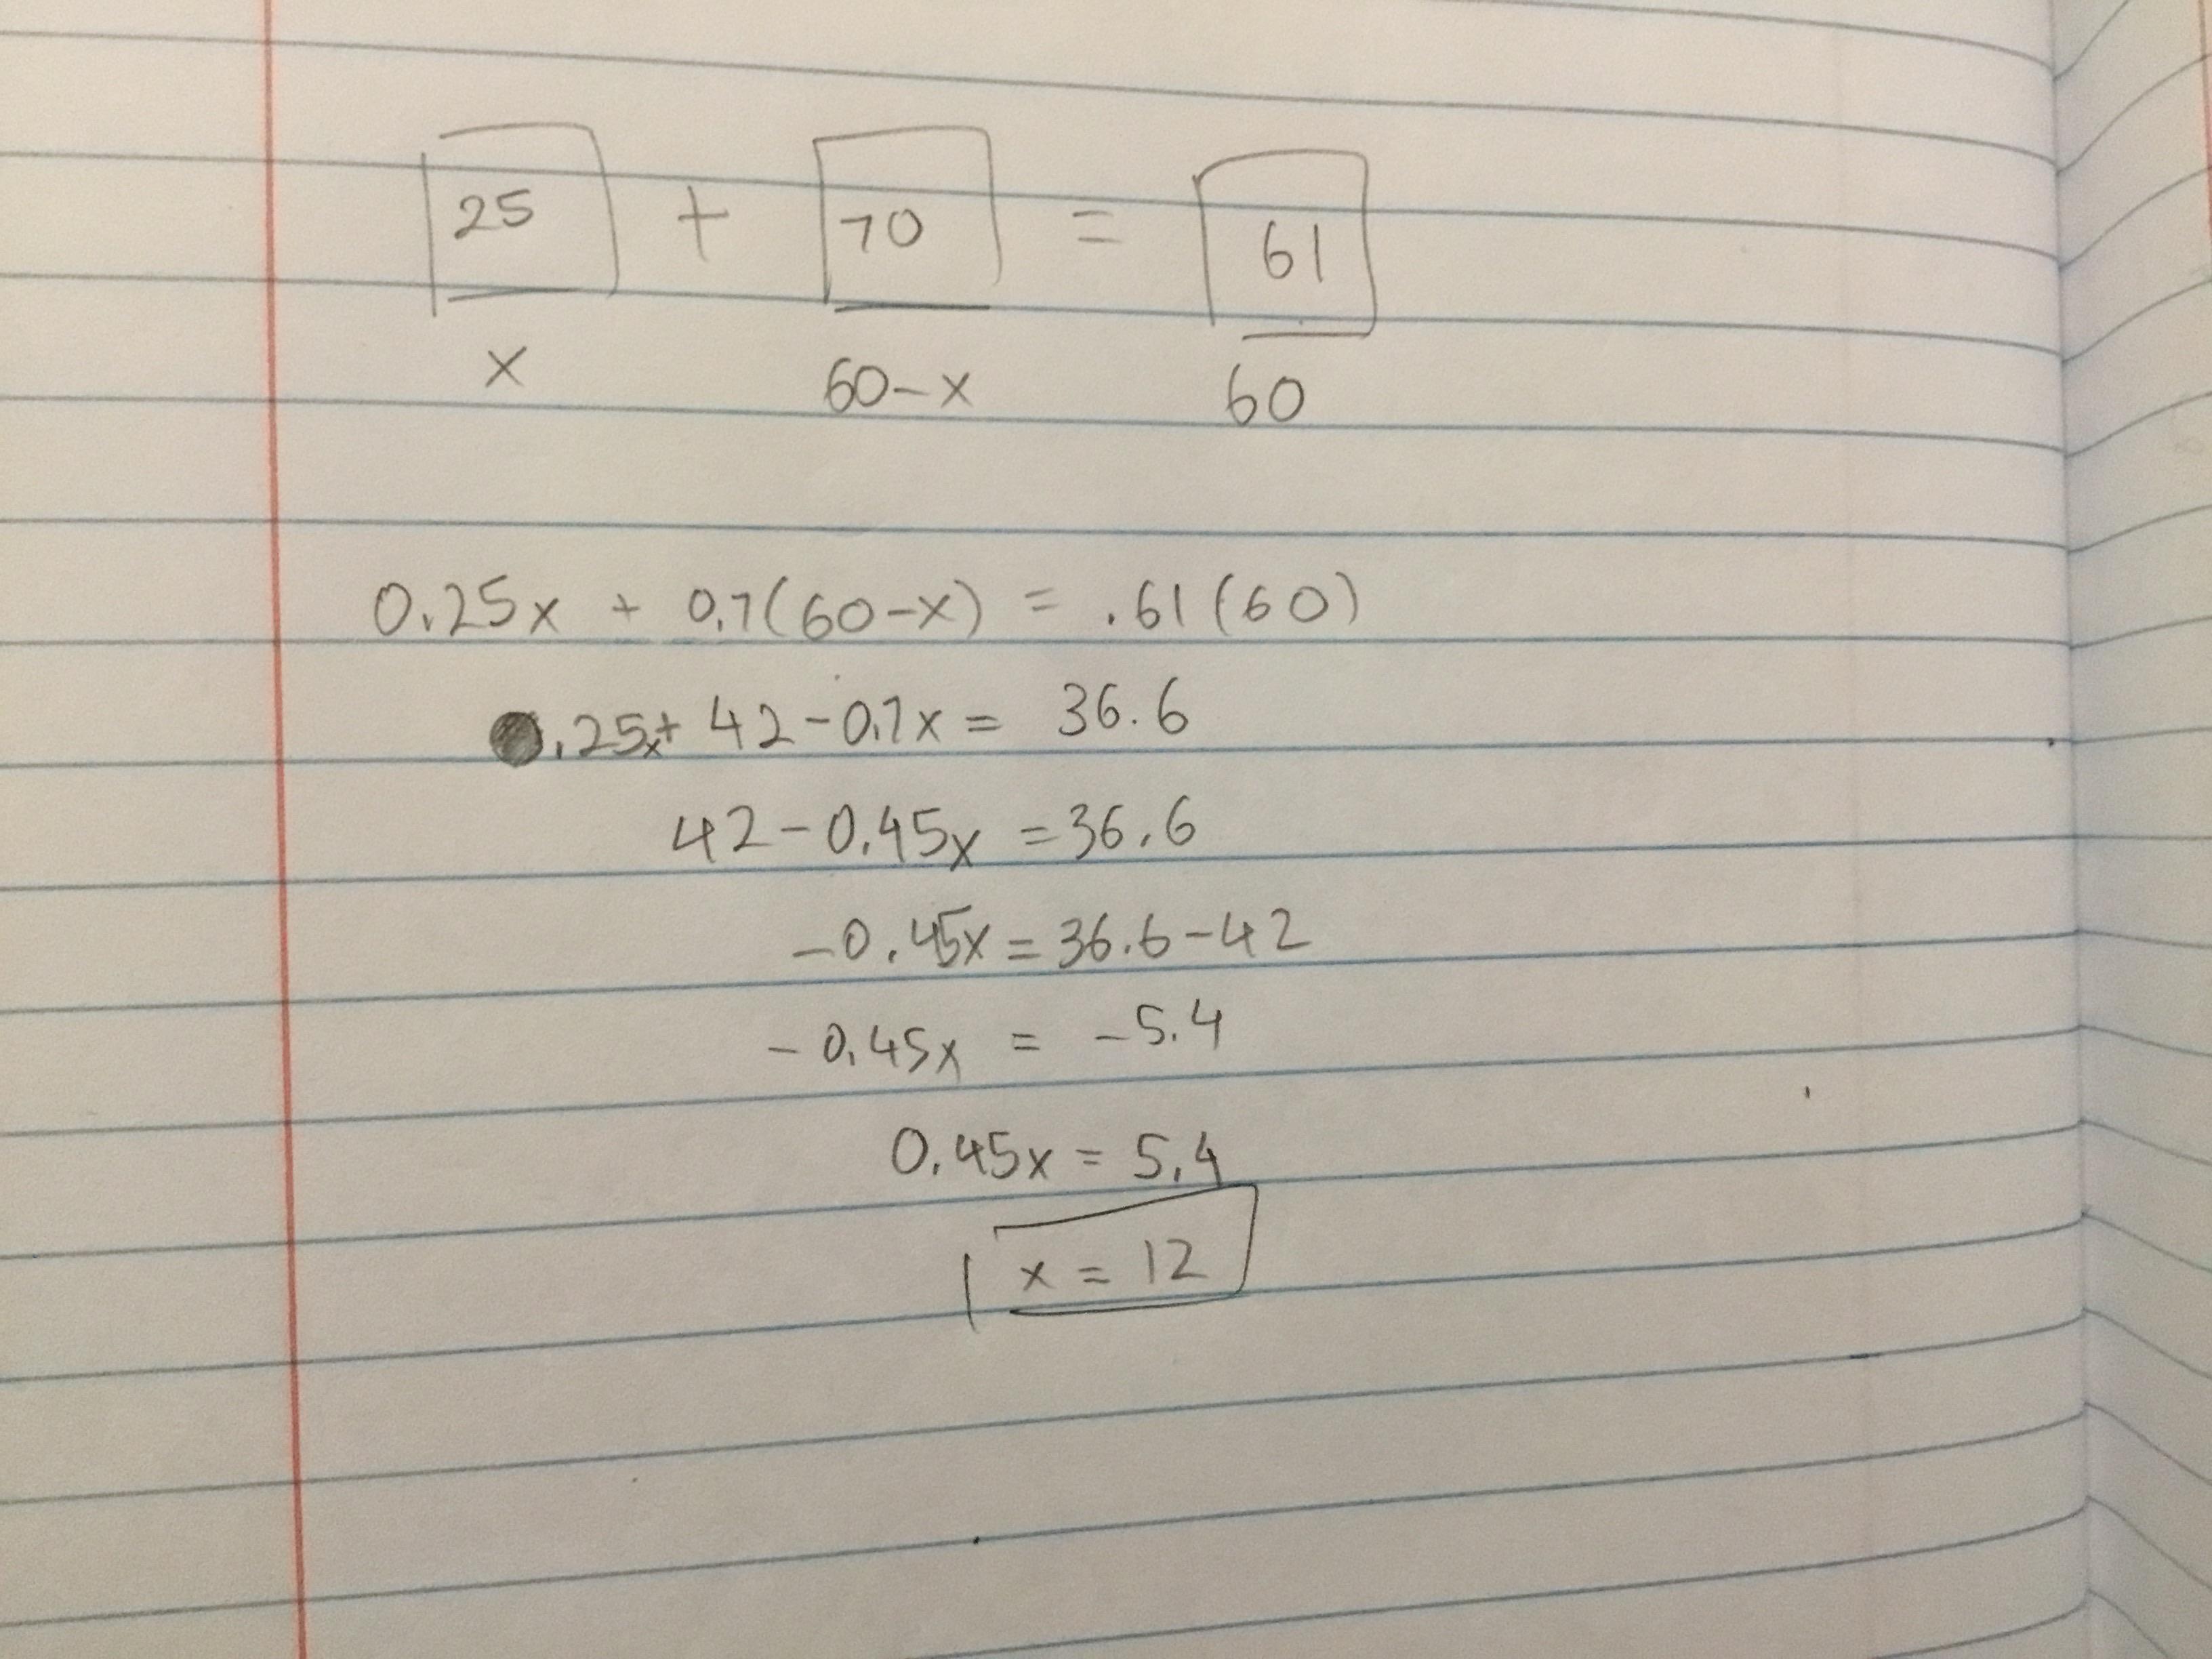 25 + 70 = 61
x 60-x 60
0.25x + 0.7(60-x) = .61(60)
.25x+ 42-0.7x = 36.6
42-0.45x = 36.6
-0.45x = 36.6-42
-0.45x = -5.4
0.45x = 5.4
x = 12